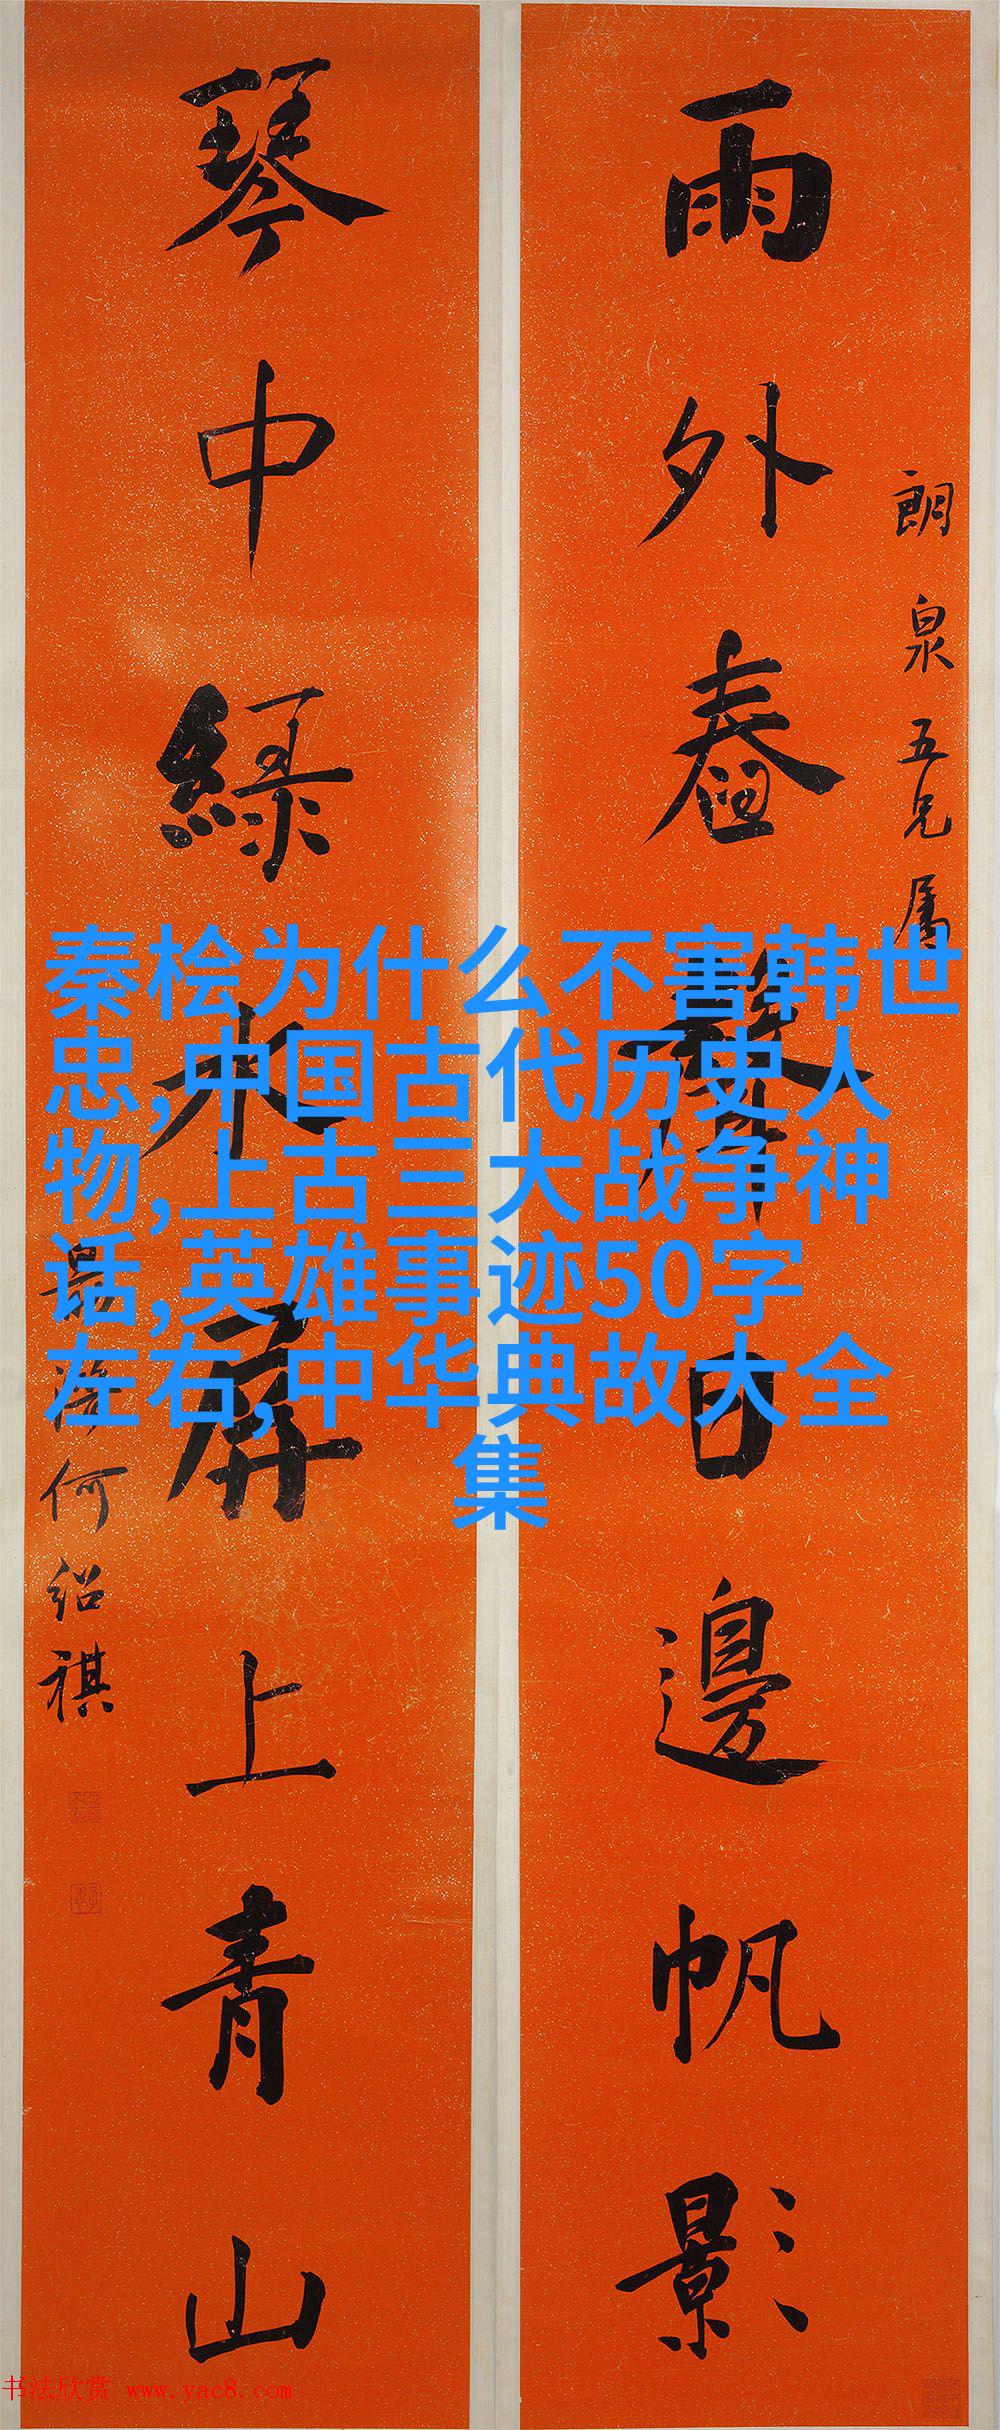 朗泉五兄屬
雨外舂聲日邊帆影
琴中綠水屏上青山
何紹祺
秦桧为什么不害韩世
忠,中国古代历史人
物,上古三大战争神
话,英雄事迹50字
左右,中华典故大全
集
书法欣赏 www.yac8.com